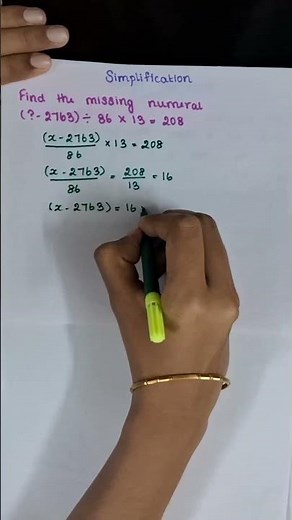 Simplification
Find the missing numeral
(?-2763) ÷ 86 × 13 = 208
(x-2763)/86 × 13 = 208
(x-2763)/86 = 208/13 = 16
(x-2763) = 16